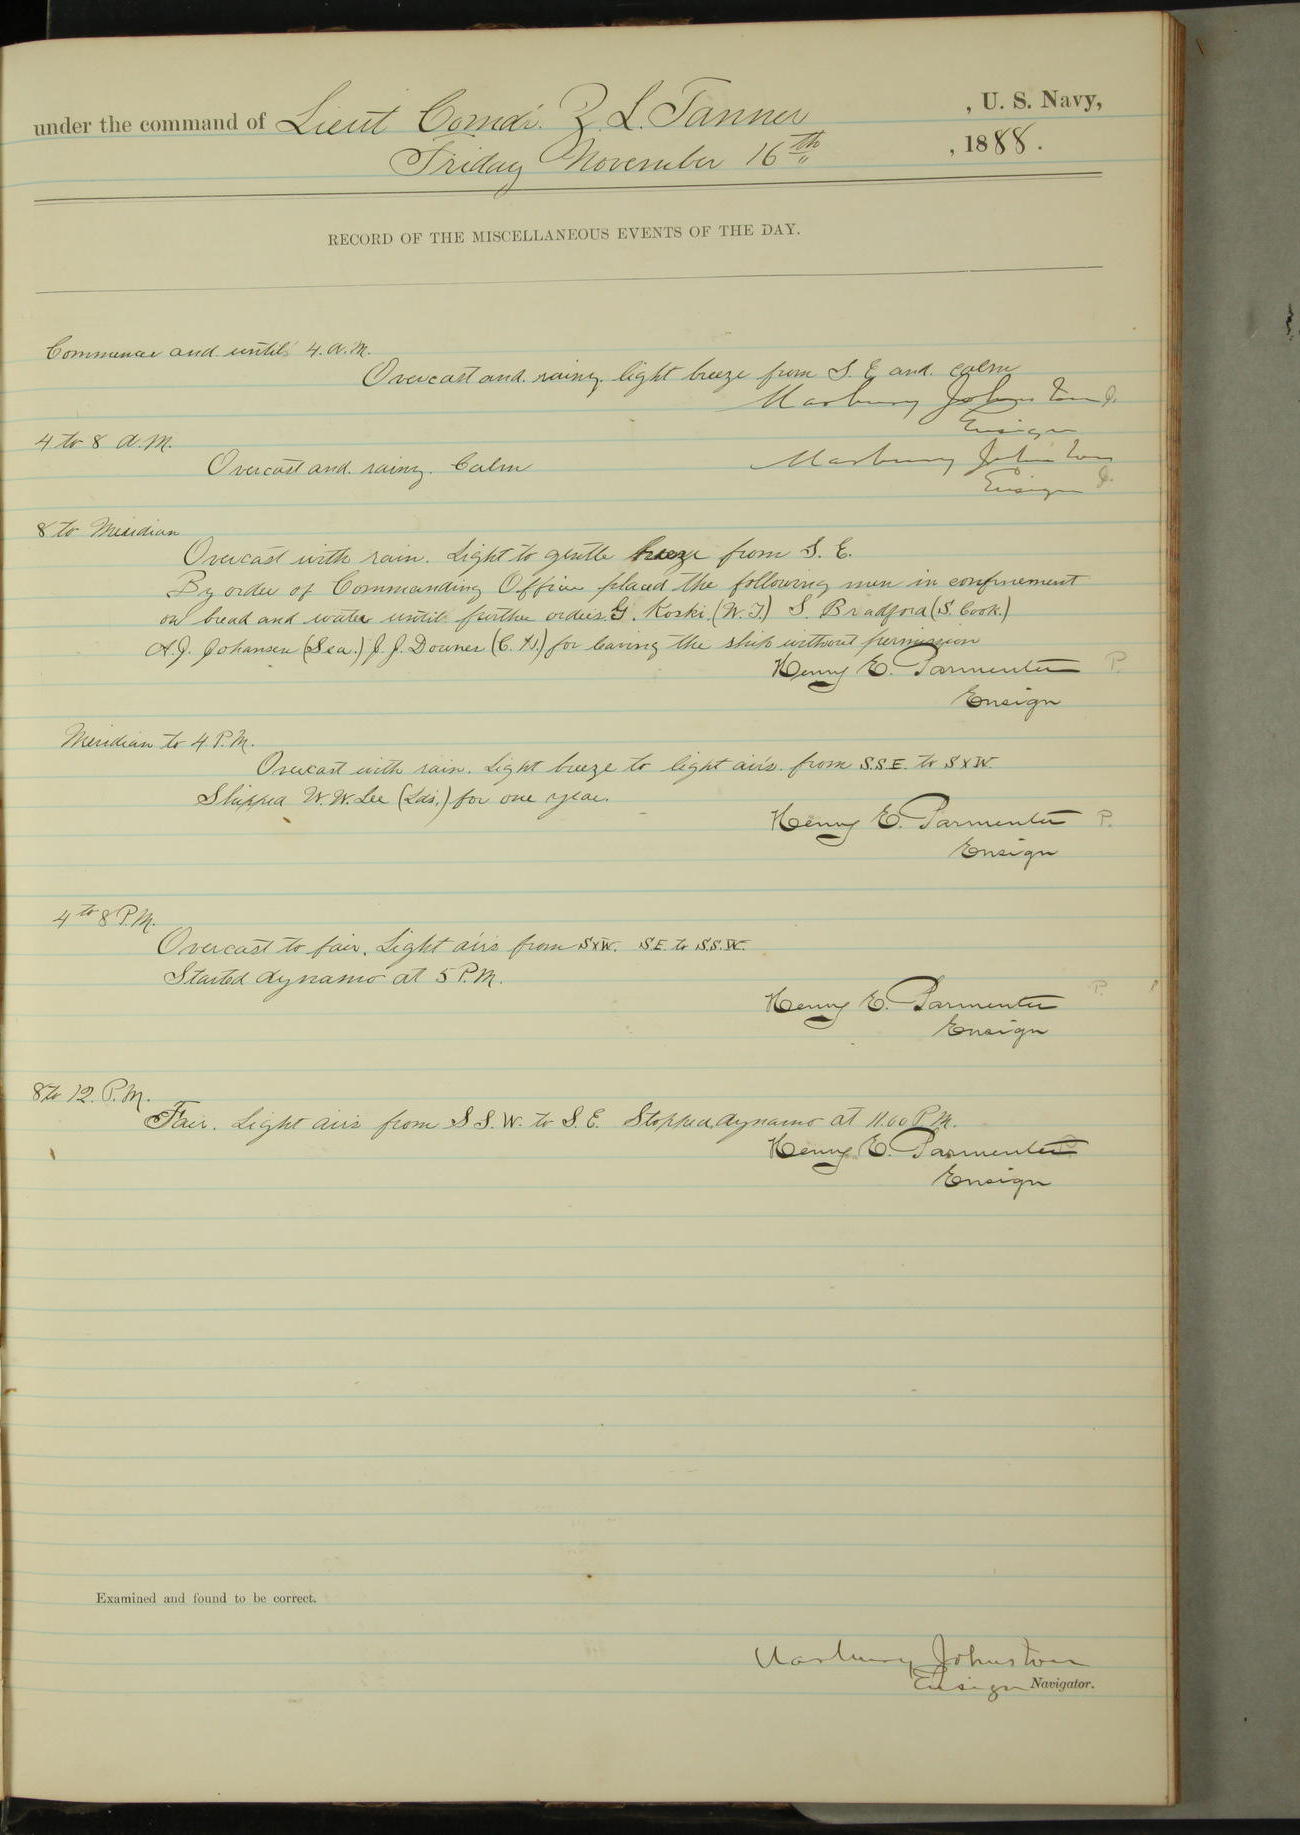 under the command of Lieut Comdr. Z. L. Tanner , U. S. Navy,
Friday November 16th , 1888.
RECORD OF THE MISCELLANEOUS EVENTS OF THE DAY.
Commence and until 4. A.M.
Overcast and rainy. light breeze from S. E. and calm
Marbury Johnston J.
Ensign
4 to 8 A.M.
Overcast and rainy. Calm
Marbury Johnston
Ensign J.
8 to Meridian
Overcast with rain. Light to gentle breeze from S. E.
By order of Commanding Officer placed the following men in confinement
on bread and water until further orders. G. Koski. (W.T.) S. Bradford (S. Cook.)
A.J. Johansen (Sea.) J. J. Downes for leaving the ship without permission
Henry E. Parmenter P.
Ensign
Meridian to 4 P.M.
Overcast with rain. Light breeze to light airs from S.S.E. to SxW.
Shipped W. W. Lee (Lds.) for one year.
Henry E. Parmenter P.
Ensign
4 to 8 P.M.
Overcast to fair. Light airs from SxW. SE to S.S.W.
Started dynamo at 5 P.M.
Henry E. Parmenter P.
Ensign
8 to 12. P.M.
Fair. Light airs from S S. W. to S. E. Stopped dynamo at 11.00 P.M.
Henry E. Parmenter
Ensign
Examined and found to be correct.
Marbury Johnston
Ensign Navigator.